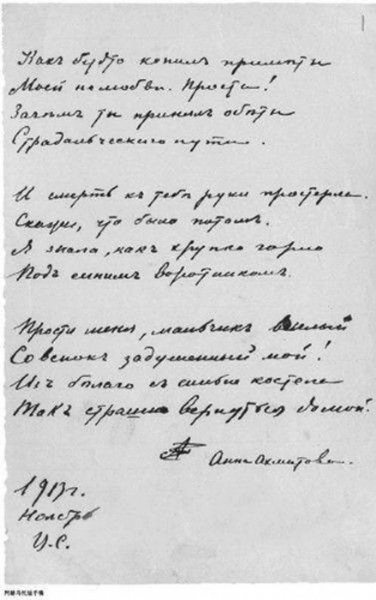 Какъ будто копилъ примѣты
Моей нелюбви. Прости!
Зачѣмъ ты принялъ обѣты
Страдальческаго пути.
И смерть къ тебѣ руки простерла.
Скажи, что было потомъ.
Я знала, какъ хрупко горло
Подъ синимъ воротникомъ.
Прости меня, мальчикъ веселый
Совенокъ задушенный мой!
Изъ бѣлаго съ синью костела
Такъ страшно вернуться домой.
Анна Ахматова.
1913г.
Ноябрь
Ц.С.
阿赫马托娃手稿